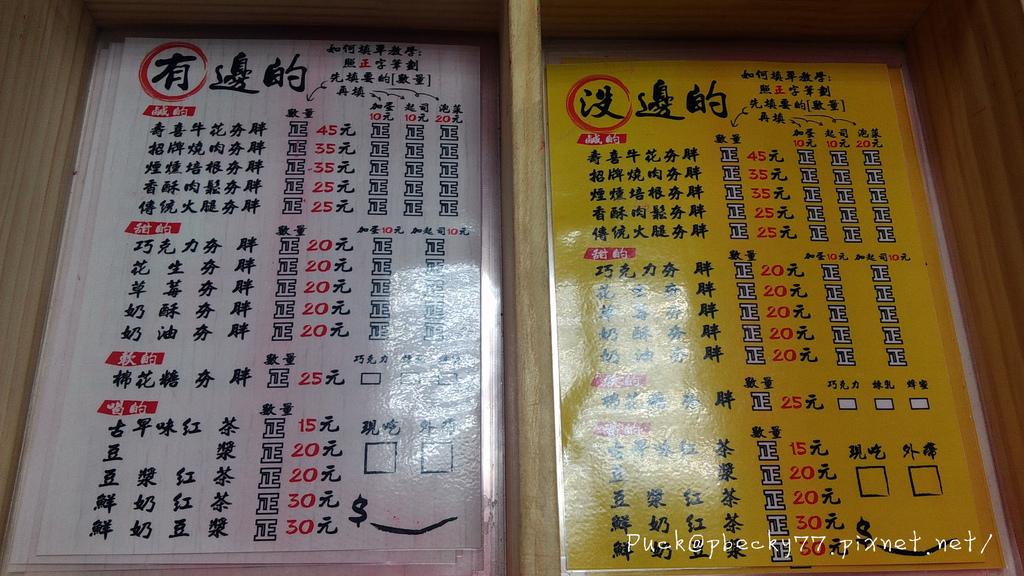 有邊的
如何填單教學:
照正字筆劃
先填要的[數量]
再填
鹹的 數量 加蛋10元 起司10元 泡菜20元
壽喜牛花夯胖 正 45元 正 正 正
招牌燒肉夯胖 正 35元 正 正 正
煙燻培根夯胖 正 35元 正 正 正
香酥肉鬆夯胖 正 25元 正 正 正
傳統火腿夯胖 正 25元 正 正 正
甜的 數量 加蛋10元 加起司10元
巧克力夯胖 正 20元 正 正
花生夯胖 正 20元 正 正
草莓夯胖 正 20元 正 正
奶酥夯胖 正 20元 正 正
奶油夯胖 正 20元 正 正
軟的 數量 巧克力
棉花糖夯胖 正 25元
喝的 數量
古早味紅茶 正 15元 現吃 外帶
豆漿 正 20元
豆漿紅茶 正 20元
鮮奶紅茶 正 30元
鮮奶豆漿 正 30元 $
沒邊的
如何填單教學:
照正字筆劃
先填要的[數量]
再填
鹹的 數量 加蛋10元 起司10元 泡菜20元
壽喜牛花夯胖 正 45元 正 正 正
招牌燒肉夯胖 正 35元 正 正 正
煙燻培根夯胖 正 35元 正 正 正
香酥肉鬆夯胖 正 25元 正 正 正
傳統火腿夯胖 正 25元 正 正 正
甜的 數量 加蛋10元 加起司10元
巧克力夯胖 正 20元 正 正
花生夯胖 正 20元 正 正
草莓夯胖 正 20元 正 正
奶酥夯胖 正 20元 正 正
奶油夯胖 正 20元 正 正
數量 巧克力 煉乳 蜂蜜
夯胖 正 25元
數量
古早味紅茶 正 15元 現吃 外帶
豆漿 正 20元
豆漿紅茶 正 20元
鮮奶紅茶 正 30元
鮮奶豆漿 正 30元 $
Puck@pbecky77.pixnet.net/